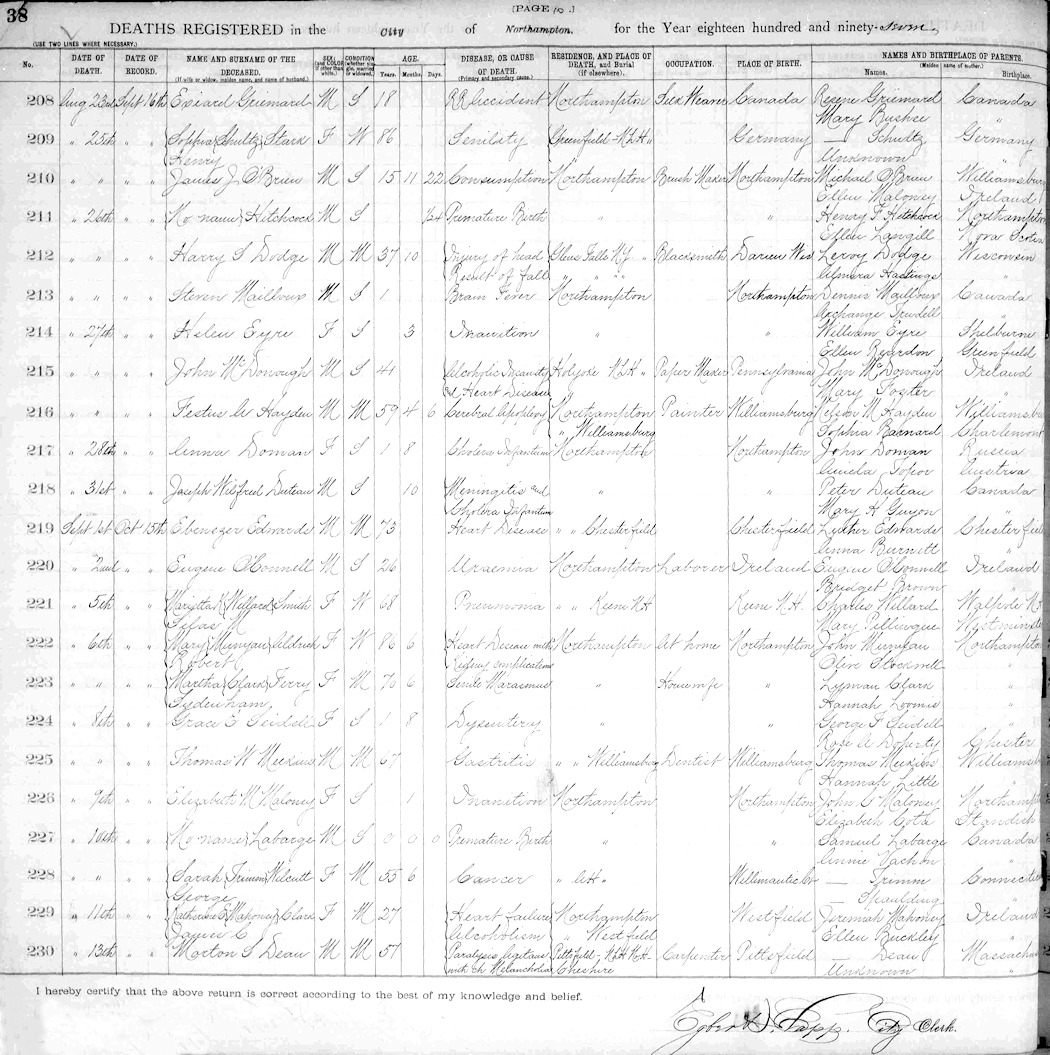 38
[PAGE 10.]
DEATHS REGISTERED in the City of Northampton. for the Year eighteen hundred and ninety-seven,
(USE TWO LINES WHERE NECESSARY.)
No. DATE OF DEATH. DATE OF RECORD. NAME AND SURNAME OF THE DECEASED. (If wife or widow, maiden name, and name of husband.) SEX; (and COLOR if other than white.) CONDITION (whether single, married, or widowed.) AGE. Years. Months. Days. DISEASE, OR CAUSE OF DEATH. (Primary and secondary cause.) RESIDENCE, AND PLACE OF DEATH, and Burial (if elsewhere). OCCUPATION. PLACE OF BIRTH. NAMES AND BIRTHPLACE OF PARENTS. (Maiden name of mother.) Names. Birthplace.
208 Aug 23rd Sept 16th M S 18 RR Accident Northampton Silk Weaver Canada Canada
Mary "
209 " 25th " " Sophia {Shultz} Stark F W 86 Senility Greenfield - NLH " Germany — Schultz Germany
Henry Unknown
210 " " " " James J. O'Brien M S 15 11 22 Consumption Northampton Brush Maker Northampton Michael O'Brien Williamsburg
Ellen Maloney Ireland
211 " 26th " " No name} Hitchcock M S Premature Birth " " Henry F Hitchcock Northampton
Ellen Langill Nova Scotia
212 " " " " Harry S Dodge M M 37 10 Injury of head Glens Falls NY " Blacksmith Darien Wis Leroy Dodge Wisconsin
Result of fall " " " " Almera Hastings "
213 " " " " Steven Mailloux M S 1 Brain Fever Northampton Northampton Dennis Mailloux Canada
Archange Trudell "
214 " 27th " " Helen Eyre F S 3 Inanition " " William Eyre Shelburne
Ellen Reardon Greenfield
215 " " " " John McDonough M S 41 Alcoholic Insanity Holyoke NLH " Paper Maker Pennsylvania John McDonough Ireland
& Heart Disease Mary Foster "
216 " " " " Festus A Hayden M M 59 4 6 Cerebral Apoplexy Northampton Painter Williamsburg Nelson M Hayden Williamsbu
" Williamsburg Sophia Barnard Charlemont
217 " 28th " " Anna Doman F S 1 8 Cholera Infantum Northampton Northampton John Doman Rusia
Aniela Topor Austria
218 " 31st " " Joseph Wilfred Duteau M S 10 Meningitis and " " Peter Duteau Canada
Cholera Infantum Mary A Guyon "
219 Sept 1st Oct 15th Ebenezer Edwards M M 73 Heart Disease " " Chesterfield Chesterfield Luther Edwards Chesterfiel
Anna Burnett "
220 " 2nd " " Eugene O'Connell M S 26 Uraemia Northampton Laborer Ireland Eugene O'Connell Ireland
Bridget Brown "
221 " 5th " " {Willard} Smith F W 68 Pneumonia " " Keene N.H Keene N.H. Charles Willard Walpole N.H
Silas M Mary Westminste
222 " 6th " " Mary {Munyan} Aldrich F W 86 6 Heart Disease with Northampton At home Northampton John Munyan Northampton
Robert Kidney complications Olive Stockwell "
223 " " " " Martha {Clark} Ferry F M 70 6 Senile Marasmus " Housewife " Lyman Clark "
Sydenham Hannah Loomis "
224 " 8th " " Grace E Seidell F S 1 8 Dysentery " " George F Seidell "
Rose A Doherty Chester
225 " " " " Thomas W Meekins M M 67 Gastritis " " Williamsburg Dentist Williamsburg Thomas Meekins Williamsb
Hannah Little "
226 " 9th " " Elizabeth M Maloney F S 1 Inanition Northampton Northampton John C Maloney Northampto
Elizabeth Cota Standish
227 " 10th " " No name} Labarge M S 0 0 0 Premature Birth " " Samuel Labarge Canada
Annie Vachon "
228 " " " " Sarah {Trimm} Wilcutt F M 55 6 Cancer " Willimantic Ct — Trimm Connecticu
George — Spaulding "
229 " 11th " " Katherine E {Mahoney} Clark F M 27 Heart failure Northampton Westfield Jeremiah Mahoney Ireland
James C Alcoholism " Westfield Ellen Buckley "
230 " 13th " " Morton S Dean M M 57 Paralysis Agitans Pittsfield - NLH Carpenter Pittsfield — Dean Massachus
with Ch Melancholia Cheshire Unknown "
I hereby certify that the above return is correct according to the best of my knowledge and belief.
City Clerk.